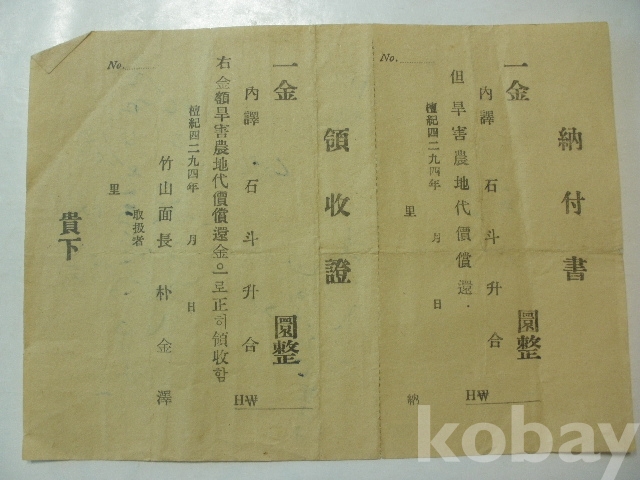 納付書
No.
一金 圜整
內譯 石斗升合 HW
但旱害農地代價償還.
檀紀四二九四年 月 日
里 納
領收證
No.
一金 圜整
內譯. 石斗升合 HW
右金額旱害農地代價償還金으로正히領收함
檀紀四二九四年 月 日
竹山面長 朴金澤
取扱者
里
貴下
kobay